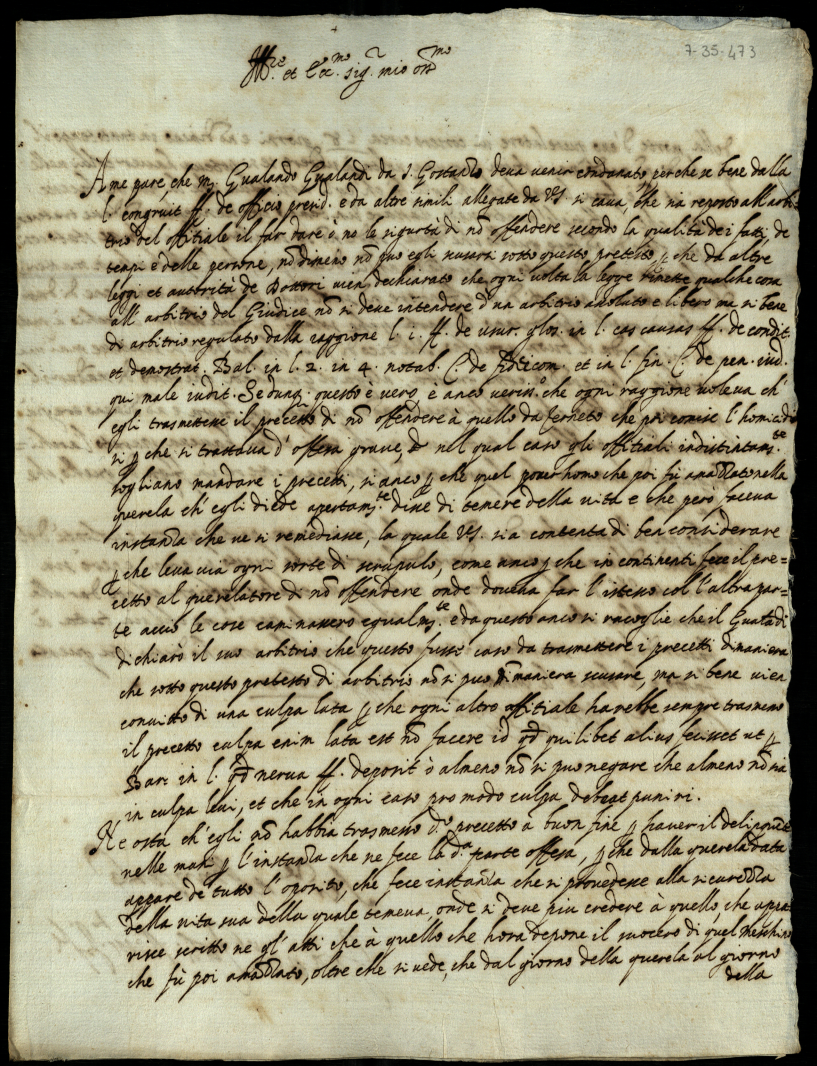 7-35-473
Ill.re et Ecc.mo sig.r mio oss.mo
A me pare, che m. Gualando Gualandi da S. Gostanzo deva venir condanato, perche se bene dalla
l. congruit ff. de officio presid. e da altre simili allegate da VS si cava, che sia reposto all' arbi
trio del offitiale il far dare ò no le sigurtà di nō offendere secondo la qualità dei fatti, de
tempi e delle persone, nō dimeno nō puo egli scusarsi sotto questo pretesto, p che da altre
leggi et autorità de Dottori vien dechiarato che ogni volta la legge rimette qualche cosa
all' arbitrio del Giudice nō si deve intendere d'un arbitrio absoluto e libero ma si bene
di arbitrio regulato dalla raggione l. i. ff. de usur. glos. in l. cas causas ff. de condit.
et demostrat. Bal. in l. 2. in 4. notab. C. de fideicom. et in l. fin. C. de pen. iud.
qui male iudit. Se dunq. questo è vero, e anco veriss.o che ogni raggione voleva ch'
egli trasmettesse il precetto di nō offendere à quello da ferneto che poi comise l'homicidi
si p che si trattava d'offesa grave, nel qual caso gli offitiali indistintam.te
sogliano mandare i precetti, si anco p che quel pover homo che poi fù amazzato nella
querela ch'egli diede apertam.te disse di temere della vita e che però faceva
instanza che vi si remediasse, la quale VS. sia contenta di ben considerare
p che leva via ogni sorte di scrupulo, come anco p che in continenti fece il pre=
cetto al querelatore di nō offendere onde doveva far l'istesso col l'altra par=
te acciò le cose caminassero egualm.te e da questo anco si racoglie che il Gualādi
dichiarò il suo arbitrio che questo fusse caso da trasmettere i precetti dimaniera
che sotto questo pretesto di arbitrio nō si puo in maniera scusare, ma si bene vien
convitto di una culpa lata p che ogni altro offitiale harebbe sempre trasmesso
il precetto culpa enim lata est nō facere id qd quilibet alius fecisset ut p
Bar. in l. qd nerva ff. deposit ò almeno nō si puo negare che almeno nō sia
in culpa levi, et che in ogni caso pro modo culpa debeat puniri.
Ne osta ch'egli nō habbia trasmesso d.o precetto a buon fine p haver il delinquēte
nelle mani p l'instanza che ne fece la d.a parte offesa, p che dalla querela data
appare de tutto l'oposito, che fece instanza che si provedesse alla sicurezza
della vita sua della quale temeva, onde si deve piu credere à quello, che appa
risce scritto ne gl'atti che à quello che hora depone il suocero di quel meschino
che fù poi amazzato, oltre che si vede, che dal giorno della querela al giorno
della